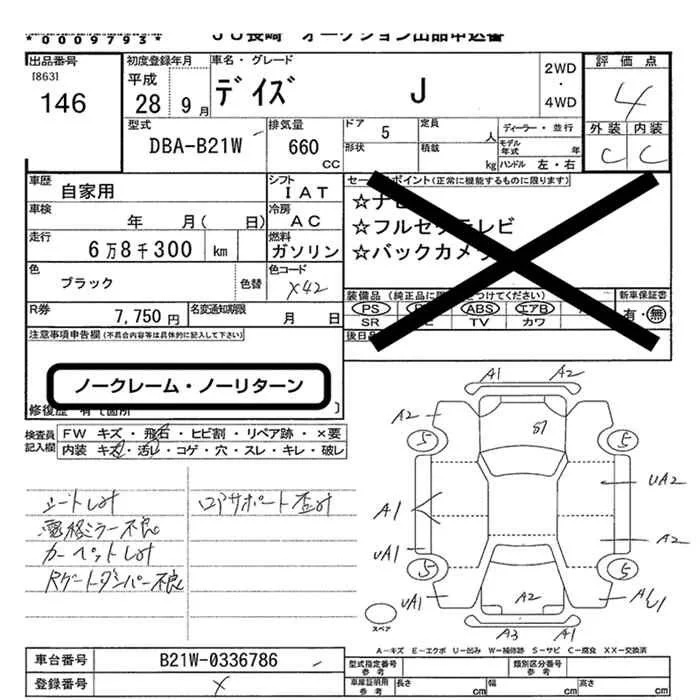 *0009793*
ＪＵ長崎　オークション出品申込書
出品番号
[863]
146
初度登録年月
平成
28年 9月
車名・グレード
デイズ J
2WD
・
4WD
評価点
4
外装 内装
C C
型式
DBA-B21W
排気量
660
CC
ドア 5
形状
定員 人
積載 kg
ディーラー・並行
モデル年式 年
ハンドル 左・右
車歴
自家用
シフト
IAT
車検
年 月( 日)
冷房
AC
走行
6万8千300 km
燃料
ガソリン
色
ブラック
色替
色コード
X42
R券
7,750円
名変通知期限
月 日
セールスポイント(正常に機能するものに限ります)
☆ナビ
☆フルセグテレビ
☆バックカメラ
装備品
PS
ABS
エアB
SR
TV
カワ
新車保証書
有・無
後日
注意事項申告欄(不具合内容等は具体的に記入して下さい)
ノークレーム・ノーリターン
修復歴 有(箇所 )
検査員
記入欄
FW キズ・飛石・ヒビ割・リペア跡・×要
内装 キズ・汚れ・コゲ・穴・スレ・キレ・破レ
シートしオ
電格ミラー不良
カーペットしオ
Rゲートダンパー不良
ロアサポート歪オ
A1 A2
A2
S1
5 5
A1
UA2
UA1
A2
5 5
UA1
A2
A3 A1
スペア
A－キズ E－エクボ U－凹み W－補修跡 S－サビ C－腐食 XX－交換済
車台番号
B21W-0336786
登録番号
X
型式指定番号
参考
類別区分番号
参考
車庫証明用
参考
長さ cm 幅 cm 高さ cm